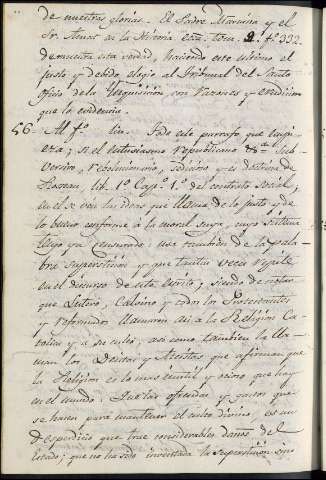 de nuestras glorias. El Padre Mariana y el
Sr. en la Historia ecca. tom. 2. fo. 332.
demuestra esta verdad, haciendo este ultimo el
justo y debido elogio al Tribunal del Santo
oficio de la Inquisicion con razones y erudicion
que la evidencia.
56. Al fo. Todo este parrafo que empie
za; si el entusiasmo republicano &a. es Sub
versivo, revolucionario, sedicioso y es doctrina de
Roseau, lib. 1o. Cap. 1o. del contrato social,
en el se ven las ideas que llama de lo justo y de
lo bueno conforme á la moral suya, cuyo sistema
ya censurado: usa tambien de la pala
bra supersticion, y que tantas veces repite
en el discurso de este escrito, siendo de notar
que Lutero, Calvino y todos los Protestantes
y reformados llamaron asi a la Religion Ca
tolica y a su culto, asi como tambien la lla
man los Deistas y Ateistas que afirman que
la Religion es lo mas inutil y ocioso que hay
en el mundo. Que las ofrendas y gastos que
se hacen para mantener el culto divino, es un
desperdicio que trae considerables daños al
Estado; que no ha sido inventada la supersticion sino